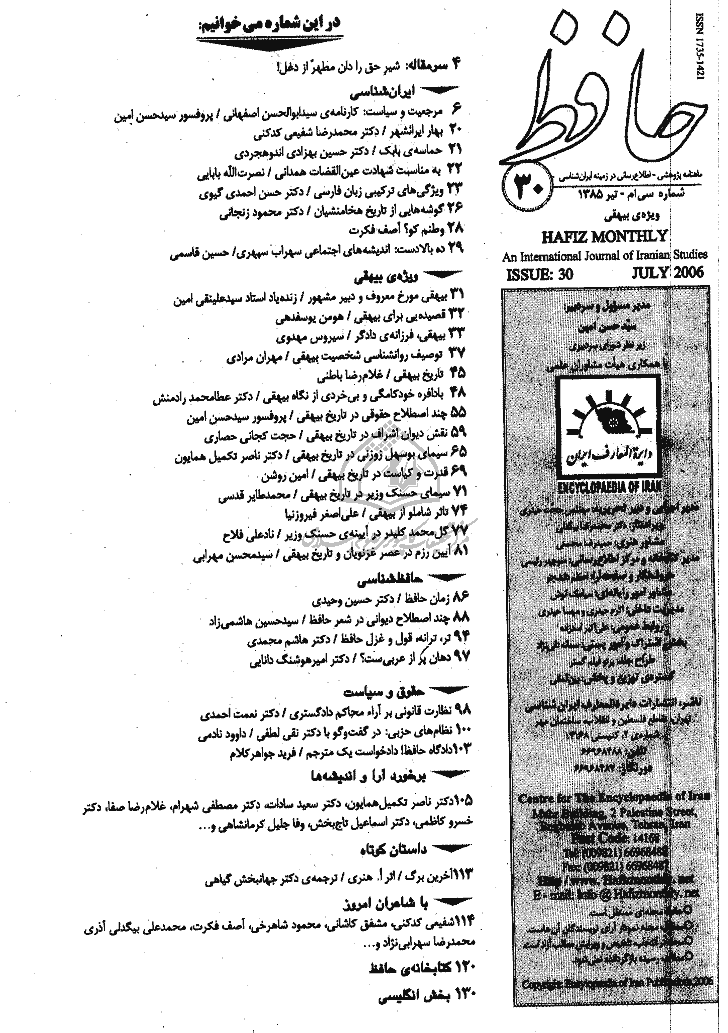 در این شماره می‌خوانیم:
۴ سرمقاله: شیرِ حق را دان مطهّر از دغل!
ایران‌شناسی
۶ مرجعیت و سیاست: کارنامه‌ی سیدابوالحسن اصفهانی / پروفسور سیدحسن امین
۲۰ بهار ایرانشهر / دکتر محمدرضا شفیعی کدکنی
۲۱ حماسه‌ی بابک / دکتر حسین بهزادی اندوهجردی
۲۲ به مناسبت شهادت عین‌القضات همدانی / نصرت‌الله بابایی
۲۳ ویژگی‌های ترکیبی زبان فارسی / دکتر حسن احمدی گیوی
۲۶ گوشه‌هایی از تاریخ هخامنشیان / دکتر محمود زنجانی
۲۸ وطنم کو؟ آصف فکرت
۲۹ ده بالادست: اندیشه‌های اجتماعی سهراب سپهری/ حسین قاسمی
ویژه‌ی بیهقی
۳۱ بیهقی مورخ معروف و دبیر مشهور / زنده‌یاد استاد سیدعلینقی امین
۳۲ قصیده‌یی برای بیهقی / هومن یوسفدهی
۳۳ بیهقی، فرزانه‌ی دادگر / سیروس مهدوی
۳۷ توصیف روانشناسی شخصیت بیهقی / مهران مرادی
۴۵ تاریخ بیهقی / غلام‌رضا باطنی
۴۸ بادافره خودکامگی و بی‌خردی از نگاه بیهقی / دکتر عطامحمد رادمنش
۵۵ چند اصطلاح حقوقی در تاریخ بیهقی / پروفسور سیدحسن امین
۵۹ نقش دیوان اشراف در تاریخ بیهقی / حجت کجانی حصاری
۶۵ سیمای بوسهل زوزنی در تاریخ بیهقی / دکتر ناصر تکمیل همایون
۶۹ قدرت و کیاست در تاریخ بیهقی / امین روشن
۷۱ سیمای حسنک وزیر در تاریخ بیهقی / محمدطاهر قدسی
۷۴ تاثر شاملو از بیهقی / علی‌اصغر فیروزنیا
۷۷ گل‌محمد کلیدر در آیینه‌ی حسنک وزیر / نادعلی فلاح
۸۱ آیین رزم در عصر غزنویان و تاریخ بیهقی / سیدمحسن مهرابی
حافظ‌شناسی
۸۶ زمان حافظ / دکتر حسین وحیدی
۸۸ چند اصطلاح دیوانی در شعر حافظ / سیدحسین هاشمی‌زاد
۹۴ تر، ترانه، قول و غزل حافظ / دکتر هاشم محمدی
۹۷ دهان پُر از عربی‌ست؟ / دکتر امیرهوشنگ دانایی
حقوق و سیاست
۹۸ نظارت قانونی بر آراء محاکم دادگستری / دکتر نعمت احمدی
۱۰۰ نظام‌های حزبی: در گفت‌وگو با دکتر نقی لطفی / داوود نادمی
۱۰۳ دادگاه حافظ! دادخواست یک مترجم / فرید جواهرکلام
برخورد آرا و اندیشه‌ها
۱۰۵ دکتر ناصر تکمیل‌همایون، دکتر سعید سادات، دکتر مصطفی شهرام، غلام‌رضا صفا، دکتر
خسرو کاظمی، دکتر اسماعیل تاج‌بخش، وفا جلیل کرمانشاهی و...
داستان کوتاه
۱۱۳ آخرین برگ / اثر اُ. هنری / ترجمه‌ی دکتر جهانبخش گیاهی
با شاعران امروز
۱۱۴ شفیعی کدکنی، مشفق کاشانی، محمود شاهرخی، آصف فکرت، محمدعلی بیگدلی آذری
محمدرضا سهرابی‌نژاد و...
۱۲۰ کتابخانه‌ی حافظ
۱۳۰ بخش انگلیسی
ISSN 1735-1421
حافظ
ماهنامه پژوهشی - اطلاع‌رسانی در زمینه ایران‌شناسی
۳۰
شماره سی‌ام - تیر ۱۳۸۵
ویژه‌ی بیهقی
HAFIZ MONTHLY
An International Journal of Iranian Studies
ISSUE: 30 JULY 2006
مدیر مسؤول و سردبیر:
سید حسن امین
زیر نظر شورای سردبیری
با همکاری هیأت مشاوران علمی
دایرةالمعارف ایران
ENCYCLOPAEDIA OF IRAN
ناشر: انتشارات دایرةالمعارف ایران‌شناسی
تلفن: ۶۶۹۶۸۴۸۸
دورنگار: ۶۶۹۶۸۴۸۷
Centre for The Encyclopaedia of Iran
Mehr Building, 2 Palestine Street,
Avenue, Tehran, Iran
Post Code: 14168
Tel: (009821) 66968488
Fax: (009821) 66968487
E-mail: Info @ Hafizmonthly.net
Copyright: Encyclopaedia of Iran Publications 2006